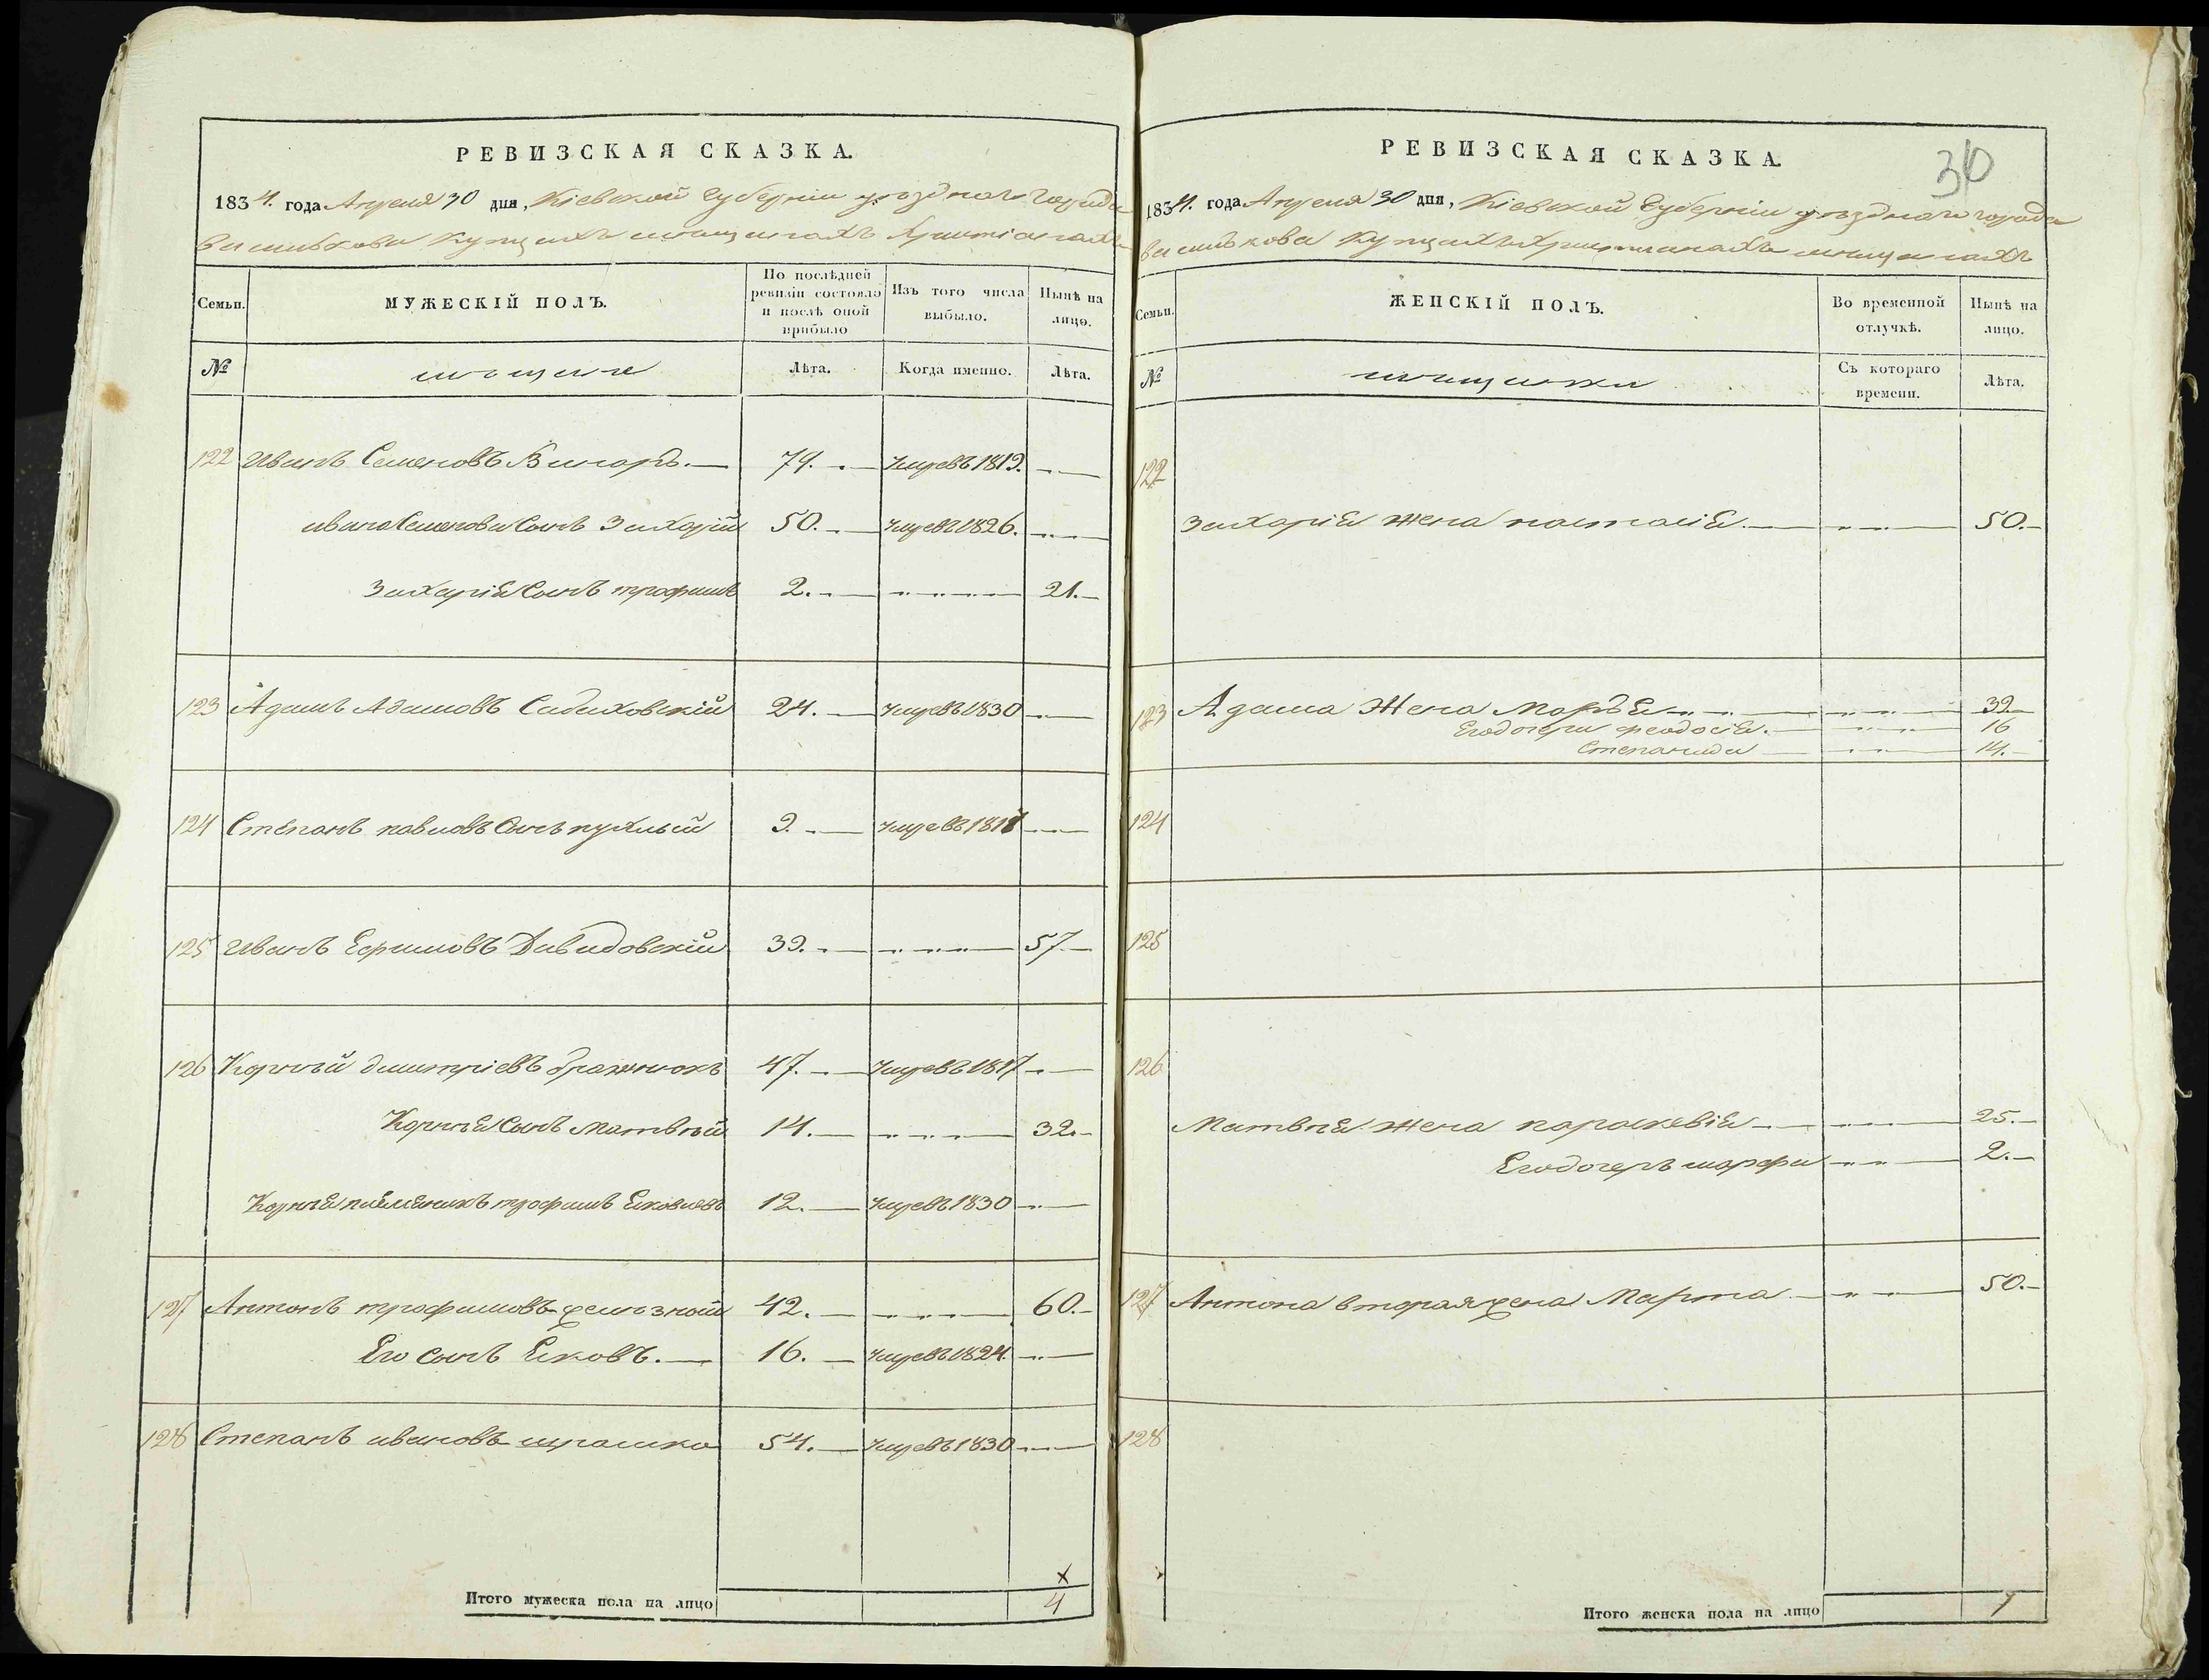 РЕВИЗСКАЯ СКАЗКА.
1834. года Апреля 30 дня, Кіевской Губерніи уезднаго города
Василькова купцахъ мещанахъ Христіанахъ
Семьи.
МУЖЕСКІЙ ПОЛЪ.
По послѣдней ревизіи состояло и послѣ оной прибыло
Изъ того числа выбыло.
Нынѣ на лицо.
№
мещане
Лѣта.
Когда именно.
Лѣта.
122 Иванъ Семеновъ 79. умревъ 1819.
ивана Семенова Сынъ Захарій 50. умревъ 1826.
Захарія Сынъ трофимъ 2. 21.
123 Адамъ Адамовъ Садаховскій 24. умревъ 1830
124 Степанъ павловъ Сынъ пухлый 9. умревъ 1818
125 Иванъ Ефимовъ Давидовскій 39. 57.
126 Корнѣй дмитріевъ бражнюкъ 47. умревъ 1817
Корнѣя Сынъ Матвѣй 14. 32.
Корнѣя племеникъ трофимъ Яковлевъ 12. умревъ 1830
127 Антонъ трофимовъ 42. 60.
Его Сынъ Яковъ. 16. умревъ 1824.
128 Степанъ ивановъ 54. умревъ 1830
Итого мужеска пола на лицо 4
РЕВИЗСКАЯ СКАЗКА.
30
1834. года Апреля 30 дня, Кіевской Губерніи уезднаго города
Василькова купцахъ христианахъ мещанахъ
Семьи.
ЖЕНСКІЙ ПОЛЪ.
Во временной отлучкѣ.
Нынѣ на лицо.
№
мещанки
Съ котораго времени.
Лѣта.
122
Захарія жена настасія 50.
123 Адама Жена Маръя 39.
Его дочери феодосія. 16
Степанида 14.
124
125
126
Матвѣя жена параскевія 25.
Его дочеръ марфа 2.
127 Антона вторая жена Марта 50.
128
Итого женска пола на лицо 7